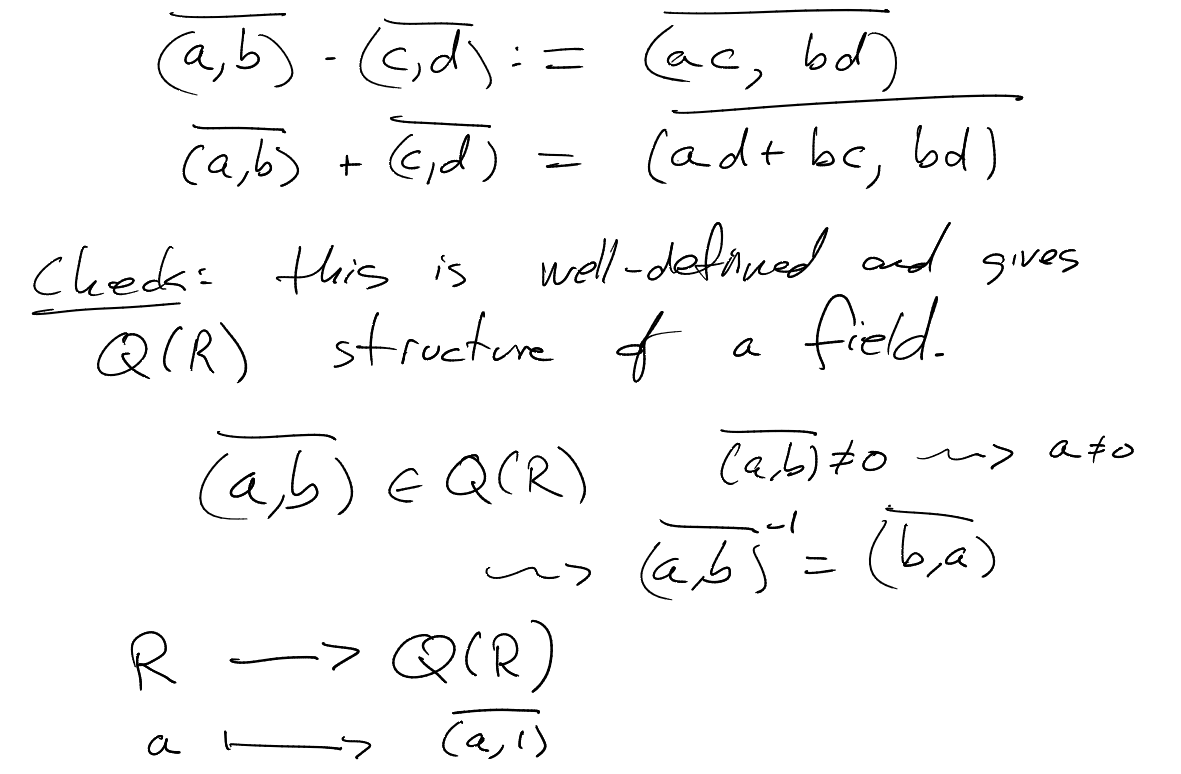 $\overline{(a,b)} \cdot \overline{(c,d)} := \overline{(ac, bd)}$
$\overline{(a,b)} + \overline{(c,d)} = \overline{(ad + bc, bd)}$
Check: this is well-defined and gives
Q(R) structure of a field.
$\overline{(a,b)} \in Q(R)$ $\overline{(a,b)} \neq 0 \rightsquigarrow a \neq 0$
$\rightsquigarrow \overline{(a,b)}^{-1} = \overline{(b,a)}$
$R \longrightarrow Q(R)$
$a \longmapsto \overline{(a,1)}$